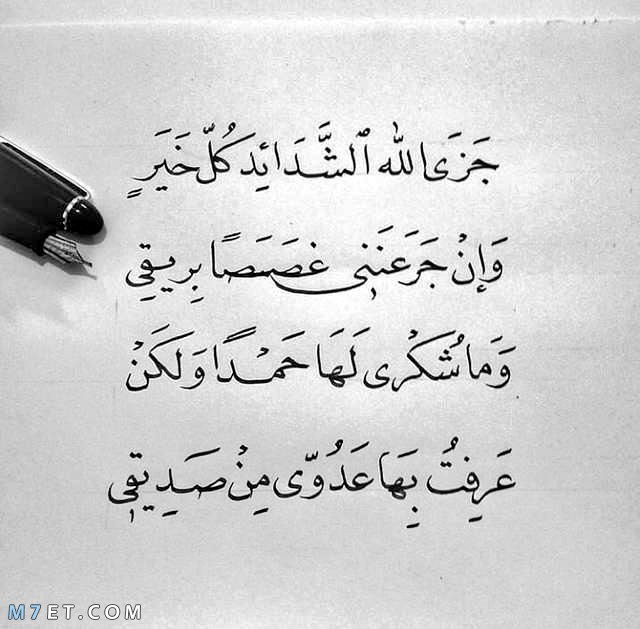 جَزَى الله ٱلشَّدَائِدَ كُلَّ خَيَرٍ
وَإِنْ جَرَعَنَني غصَصَصًا بِريقِي
وَمَا شُكْرى لَهَا حَمْدًا وَلَكَنْ
عَرِفتُ بِهَا عَدُوّى مِنْ صَدِيقِي
M7ET.COM